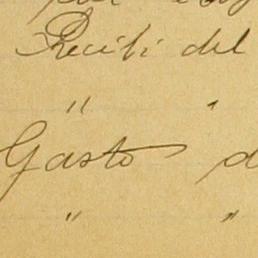 Recibi del
" "
Gasto d
" "